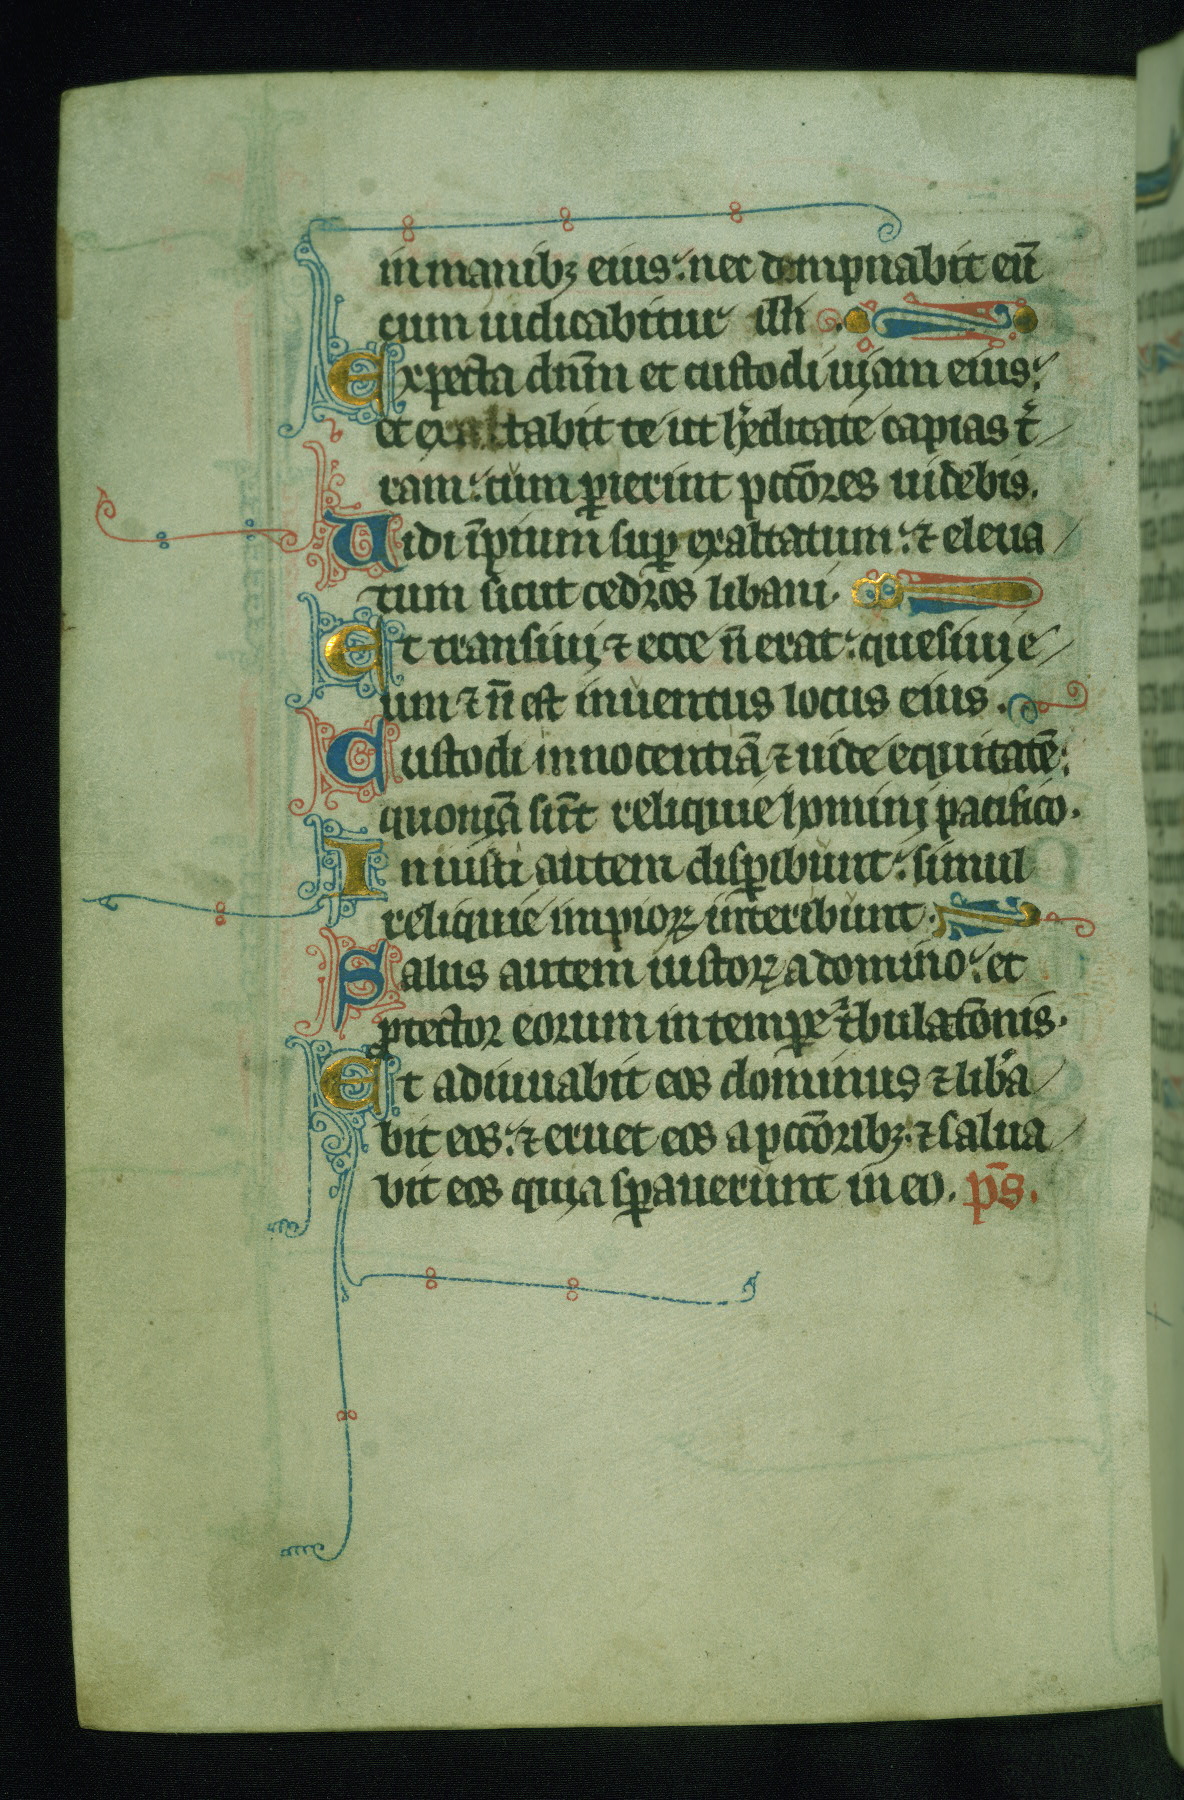 in manibꝫ eius: nec dempnabit eū
cum iudicabitur illi.
Expecta dn̄m et custodi uiam eius:
et exaltabit te ut hͤditate capias t̉
ram: cum ꝑierint pctōres uidebis.
Uidi īpium suꝑ exaltatum: ⁊ eleua
tum sicut cedros libani.
Et transiui ⁊ ecce n̄ erat: quesiui e
um ⁊ n̄ est inuentus locus eius.
Custodi innocentiā ⁊ uide equitatē:
quoniā sūt reliquie homini pacifico.
Iniusti autem disꝑibunt: simul
reliquie impioꝝ interibunt.
Salus autem iustoꝝ a domino: et
ꝓtector eorum in temꝑe t̉bulatōnis.
Et adiuuabit eos dominus ⁊ lib̉a
bit eos: ⁊ eruet eos a pctōribꝫ ⁊ salua
bit eos quia sꝑauerunt in eo. p̄s.